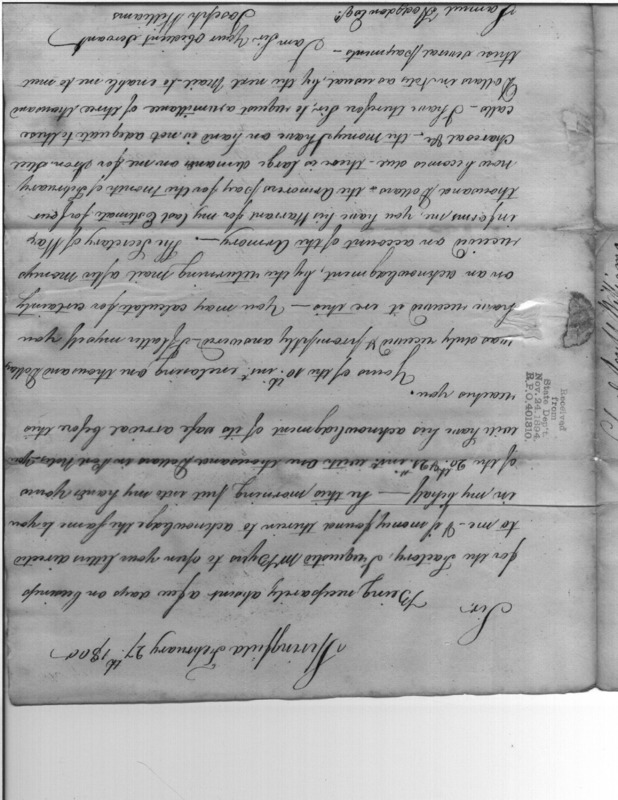 Springfield February 27th. 1800
Sir
Being necessarily absent a few days on business
for the Factory, I requested Mr Byers to open your letters directed
to me - & if money found therein to acknowledge the same to you
in my behalf — he this morning put into my hands yours
of the 20th & 21st inst. with one thousand Dollars in Post Notes, you
will have his acknowledgment of its safe arrival before this
reaches you.
Yours of the 10th inst. enclosing one thousand Dollars
was duly received & promptly answered I flatter myself you
have received it ere this — You may calculate for certainty
on an acknowledgment, by the returning mail after moneys
received on account of this Armory —. The Secretary of War
informs me, you have his Warrant for my last Estimate for four
thousand Dollars - the Armorers pay for the month of February
now becomes due - there is large demands on me for Iron Steel
Charcoal &c. the money I have on hand is not adequate to these
calls - I have therefore Sir, to request a remittance of three thousand
Dollars in Notes as usual, by the next Mail to enable me to meet
these several payments -
I am Sir Your Obedient Servant
Joseph Williams
Samuel Hodgdon Esqr.
Received
from
State Dep't.
Nov. 24, 1894.
R.P.O. 401810.